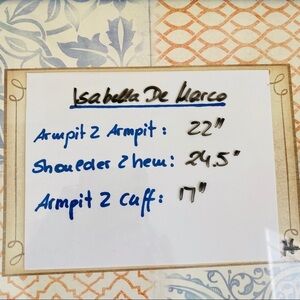 Isabella De Marco
Armpit 2 Armpit : 22"
Shoulder 2 hem : 24.5"
Armpit 2 Cuff : 17"